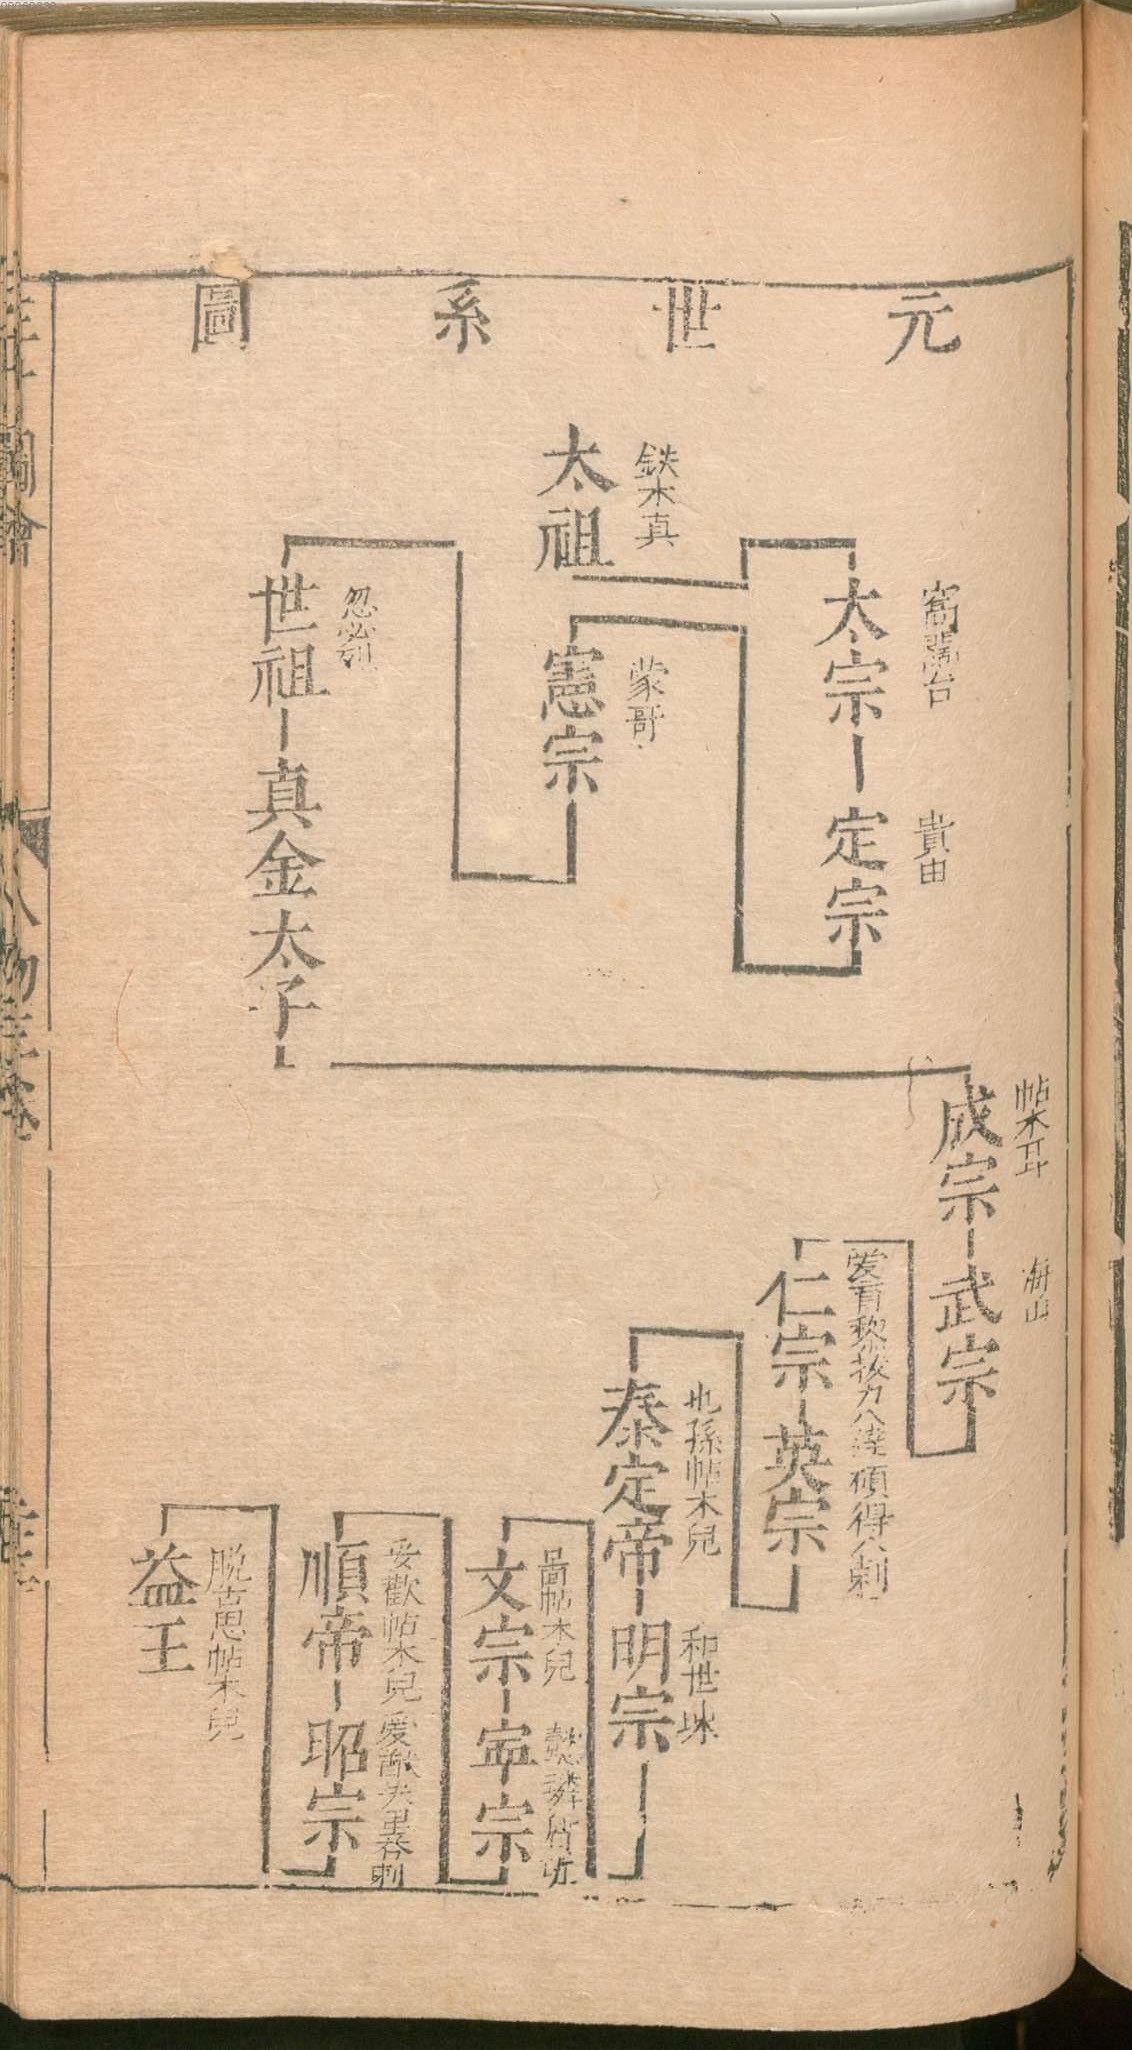 元世系圖
太祖
鉄木真
太宗
窩闊台
定宗
貴由
憲宗
蒙哥
世祖
忽必烈
真金太子
成宗
帖木耳
武宗
海山
仁宗
爱育黎拔力八達
英宗
碩得八剌
泰定帝
也孫帖木兒
明宗
和世㻋
文宗
啚帖木兒
寍宗
懿璘質班
順帝
妥歡帖木兒
昭宗
爱猷失里荅剌
益王
脱古思帖木兒
三才圖會
人物三卷